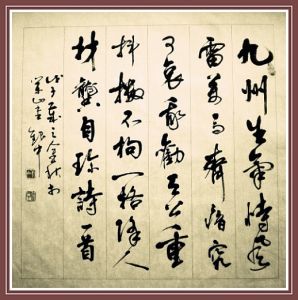 九州生氣恃風
雷萬馬齊喑究
可哀我勸天公重
抖擻不拘一格降人
材龔自珍詩一首
戊子之金秋